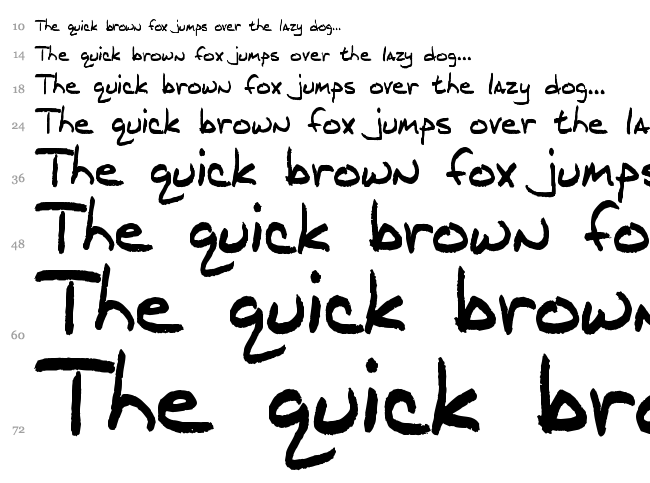 10 The quick brown fox jumps over the lazy dog...
14 The quick brown fox jumps over the lazy dog...
18 The quick brown fox jumps over the lazy dog...
24 The quick brown fox jumps over the la
36 The quick brown fox jumps
48 The quick brown fo
60 The quick brown
72 The quick bro